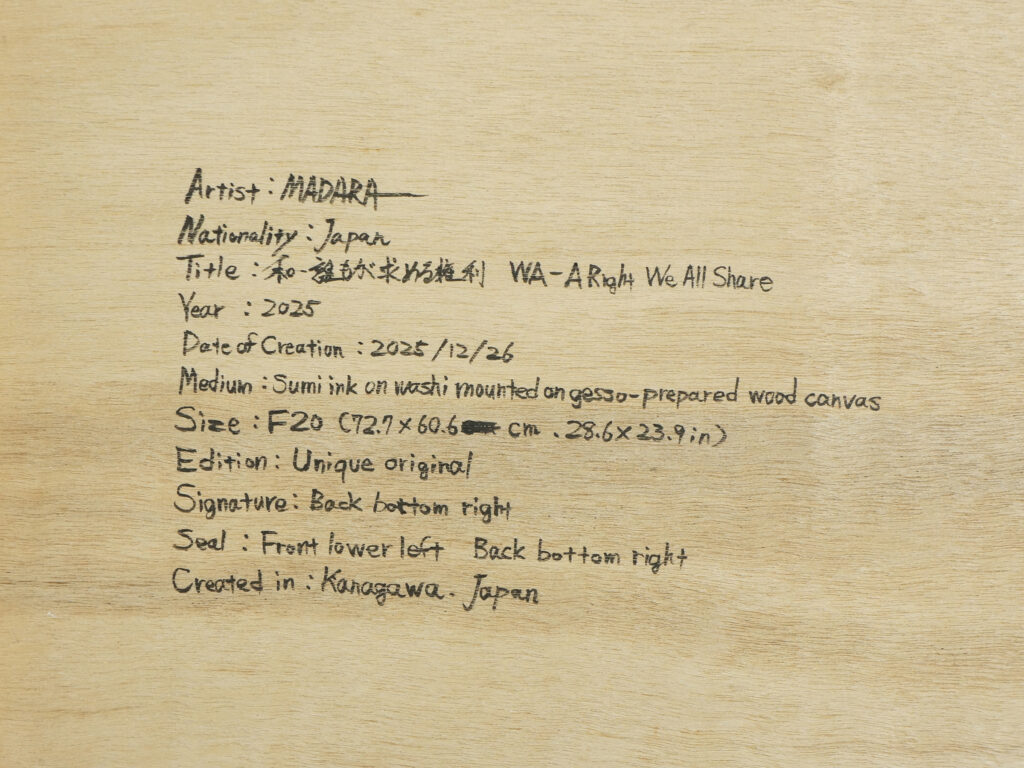 Artist : MADARA
Nationality : Japan
Title : 和-誰もが求める権利 WA-A Right We All Share
Year : 2025
Date of Creation : 2025/12/26
Medium : Sumi ink on washi mounted on gesso-prepared wood canvas
Size : F20 (72.7×60.6 cm . 28.6×23.9in)
Edition : Unique original
Signature : Back bottom right
Seal : Front lower left Back bottom right
Created in : Kanagawa. Japan